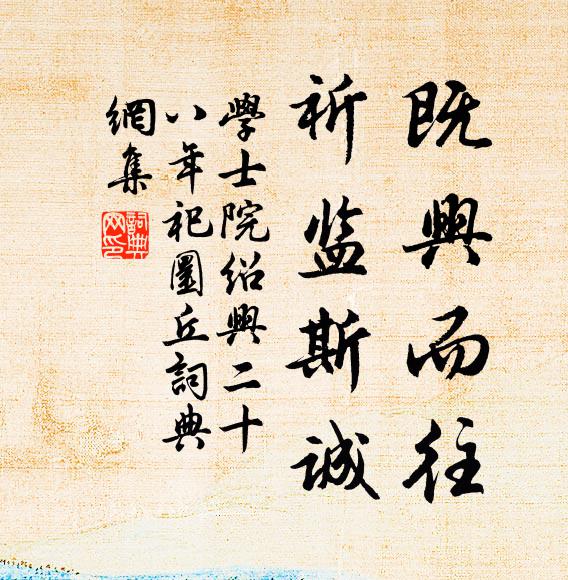 既興而往
祈监斯诚
學士院绍興二十
八年祀圜丘詞典
網集
詞典網印